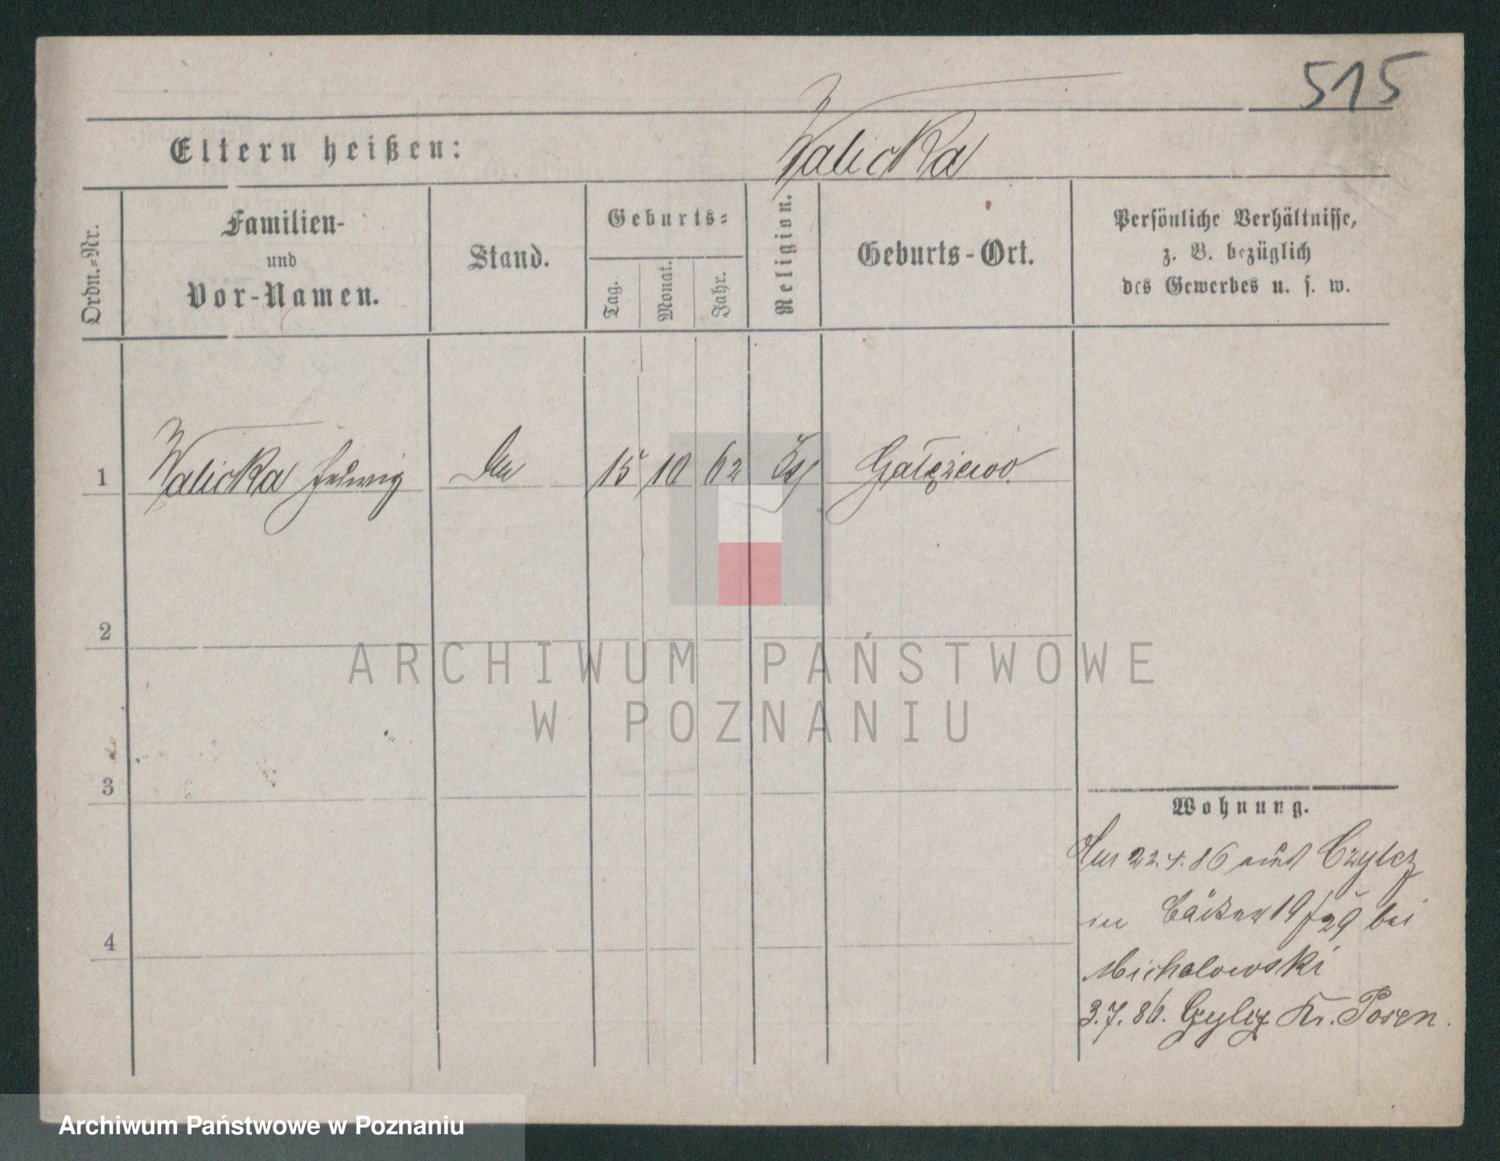 515
Walicka
Eltern heißen:
Ordn.-Nr.
Familien-
und
Vor-Namen.
Stand.
Geburts-
Tag.
Monat.
Jahr.
Religion.
Geburts-Ort.
Persönliche Verhältnisse,
z. B. bezüglich
des Gewerbes u. s. w.
1 Walicka Hedwig 15 10 62 Gałęzewo
2
3
4
ARCHIWUM PAŃSTWOWE
W POZNANIU
Wohnung.
22.4.86 aus
in Bäcker 19/29 bei
Michalowski
3.7.86. Kr. Posen.
Archiwum Państwowe w Poznaniu